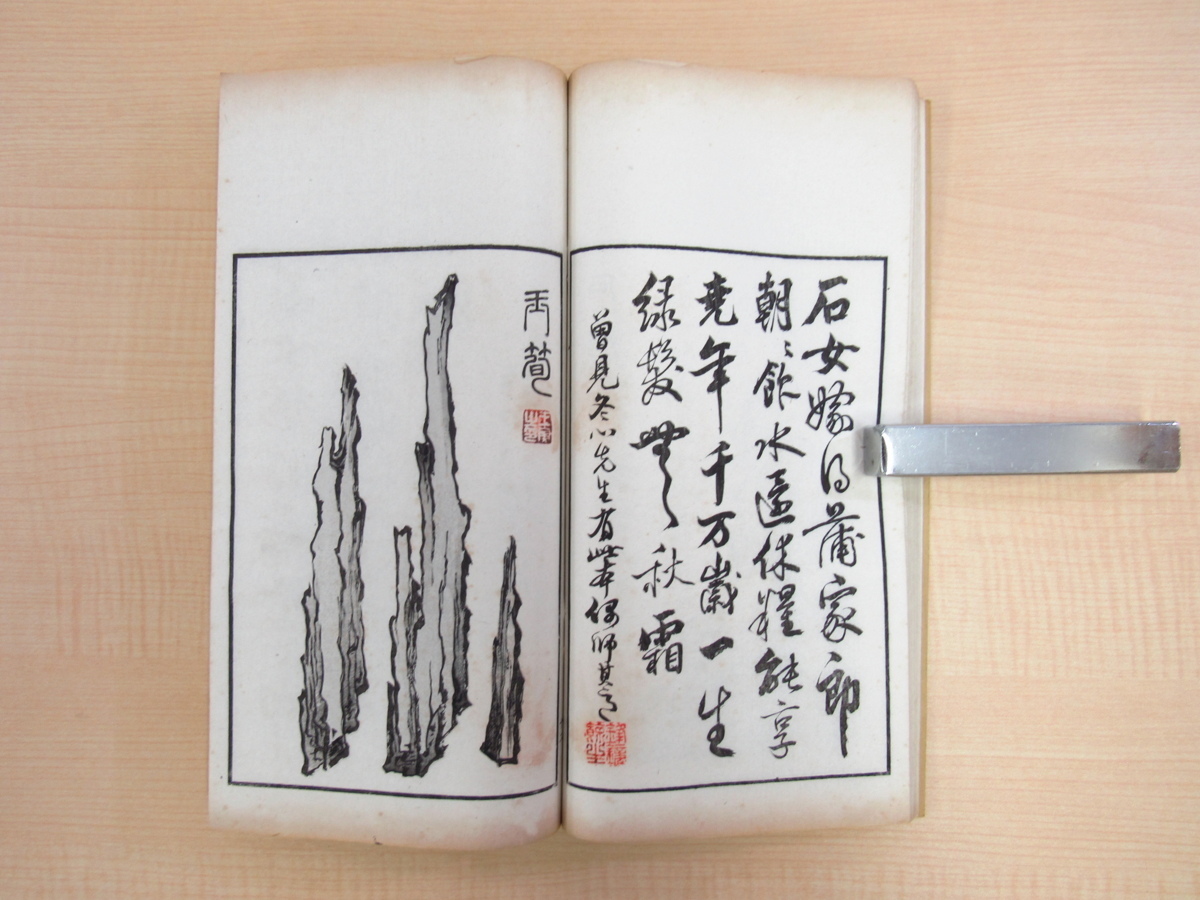 石女嫁得蒲家郎
朝〻飲水還休糧能享
堯年千万歲一生
綠鬢無秋霜
曾見冬心先生有此本偶師其意
玉筍